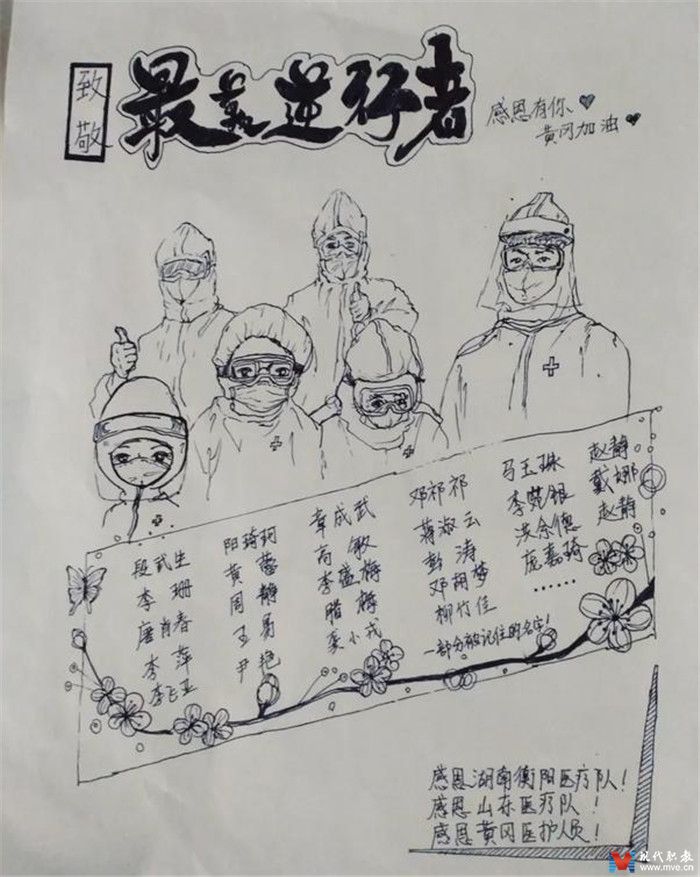 致敬
最美逆行者
感恩有你
黄冈加油
段武生
李 珊
唐肖春
李 萍
李飞亚
阳琦珂
黄
周 静
王 勇
尹 艳
章成武
高 敏
李益梅
腊 梅
小戎
邓祁祁
蒋淑云
彭 涛
邓胡梦
柳竹佳
一部分被记住的名字!
马玉珠
李 银
洪余德
庞嘉琦
……
赵静
戴娜
赵静
感恩湖南衡阳医疗队!
感恩山东医疗队!
感恩黄冈医护人员!
现代职教
www.mve.cn